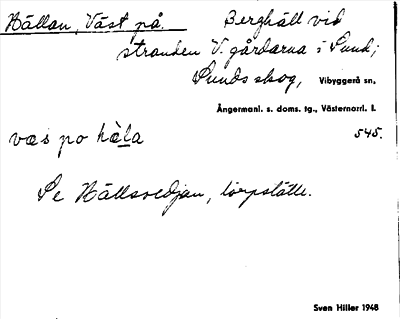 Hällan, Väst på. Berghäll vid
stranden V. gårdarna i Sund;
Sunds skog, Vibyggerå sn,
Ångermanl. s. doms. tg., Västernorrl. l.
væs po hèla 545.
Se Hällsvedjan, torpställe.
Sven Hiller 1948